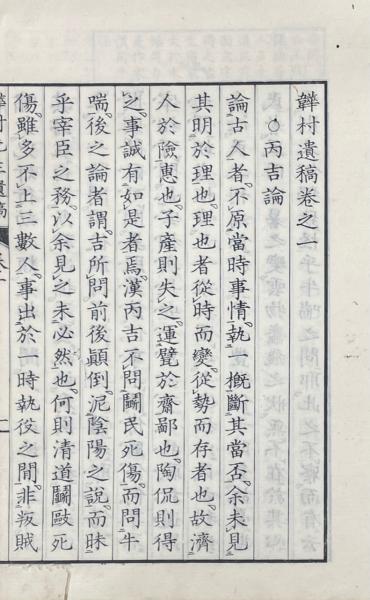 韡村遺稿卷之一
○丙吉論
論古人者。不原當時事情。執一概斷其當否。余未見
其明於理也。理也者從時而變。從勢而存者也。故濟
人於險惠也。子產則失之。運甓於齋鄙也。陶侃則得
之。事誠有如是者焉。漢丙吉不問鬭民死傷。而問牛
喘。後之論者謂。吉所問前後顛倒。泥陰陽之說。而昧
乎宰臣之務。以余見之未必然也。何則清道鬭毆死
傷。雖多不上三數人。事出於一時執役之間。非叛賊